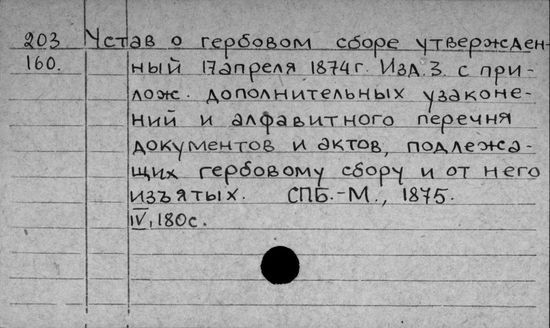 203 Устав о гербовом сборе утвержден-
160. ный 17 апреля 1874 г. Изд. 3. с при-
лож. дополнительных узаконе-
ний и алфавитного перечня
документов и актов, подлежа-
щих гербовому сбору и от него
изъятых. СПБ.-М., 1875.
IV, 180 с.